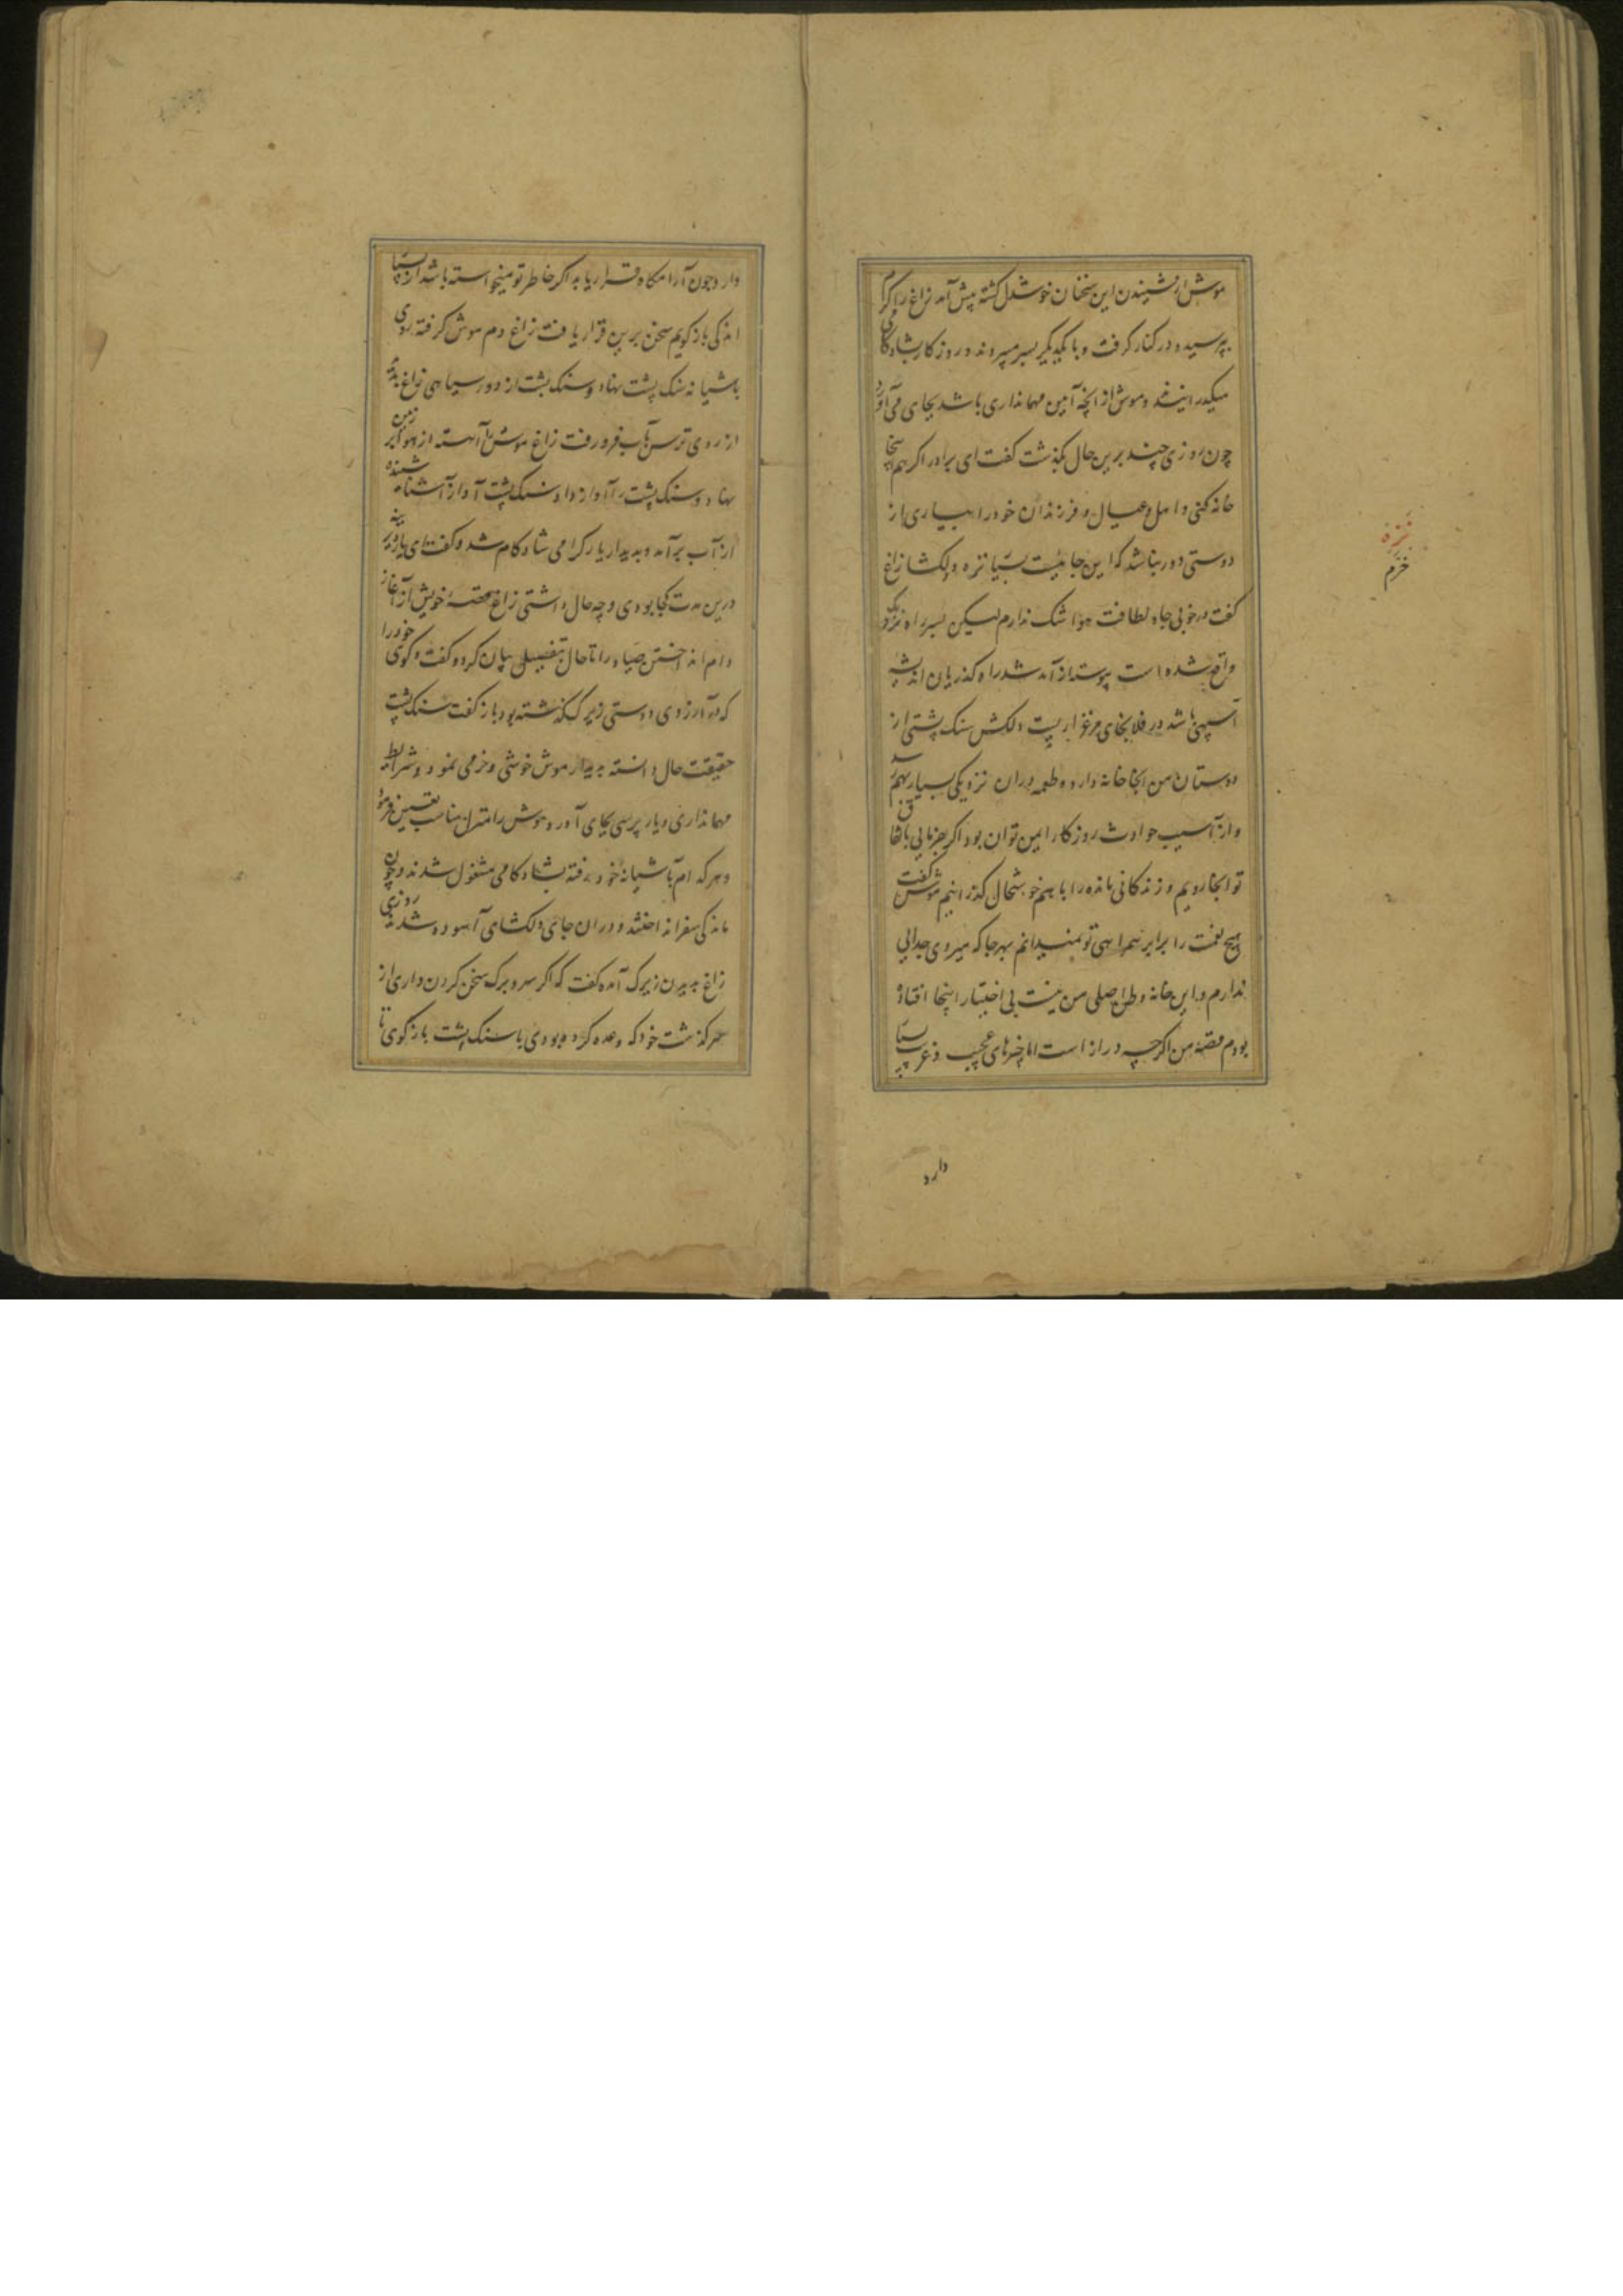 موش از شنیدن این سخنان خوشدل کشته پیش آمد زاغ را کرم
بپرسید و در کنار کرفت و با یکدیکر بسر میبردند و روزکار بشادکامی
میکذرانیدند و موش از انچه آیین مهمانداری باشد بجای می آورد
چون روزی چند برین حال بکذشت کفت ای برادر اکر هم اینجا
خانه کنی و اهل و عیال و فرزندان خود را بیاری از
دوستی دور نباشد که این جائیست بسیار نزه و دلکشا زاغ
کفت در خوبی جا و لطافت هوا شک ندارم لیکن بسر راه نزدیک
واقع شده است پیوسته از آمد شد راه کذریان اندیشه
آسیبی باشد در فلان جای مرغزاریست دلکش سنک پشتی از
دوستان من انجا خانه دارد و طعمه دران نزدیکی بسیار بهم رسد
و از آسیب حوادث روزکار ایمن توان بود اکر بفرمایی باتفاق
تو انجا رویم و زندکانی مانده را با هم خوشحال کذرانیم موش کفت
هیچ نعمت را برابر همراهی تو نمیدانم بهرجا که میروی جدایی
ندارم و این خانه وطن اصلی من نیست بی اختیار اینجا افتاده
بودم قصه من اکرچه دراز است اما چیزهای عجیب و غریب بسیار
دارد
نزه
خرم
دارد و چون آرامکاه قرار یابد اکر خاطر تو میخواسته باشد از بسیار
اندکی باز کویم سخن برین قرار یافت زاغ دم موش کرفته روی
باشیانه سنک پشت نهاد و سنک پشت از دور سیاهی زاغ دیده
از روی ترس بآب فرو رفت زاغ موش را آهسته از هوا بر زمین
نهاد و سنک پشت را آواز داد سنک پشت آواز آشنا شنیده
از آب بر آمد و بدیدار یار کرامی شادکام شد و کفت ای یار دیرینه
درین مدت کجا بودی و چه حال داشتی زاغ قصهٔ خویش از آغاز
دام انداختن صیاد را تا حال بتفصیل بیان کرد و کفت و کوی خود را
که در آرزوی دوستی زیرک کذشته بود باز کفت سنک پشت
حقیقت حال دانسته بدیدار موش خوشی و خرمی نمود و شرایط
مهمانداری و یار پرسی بجای آورد و موش را منزل مناسب تعیین فرمود
و هر کدام باشیانهٔ خود رفته بشادکامی مشغول شدند و چون
ماندکی سفر انداختند و دران جای دلکشای آسوده شدند روزی
زاغ بدیدن زیرک آمده کفت که اکر سر و برک سخن کردن داری از
سرکذشت خود که وعده کرده بودی با سنک پشت باز کوی تا